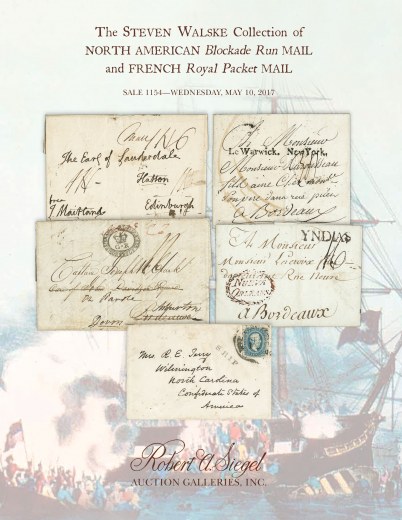 The STEVEN WALSKE Collection of
NORTH AMERICAN Blockade Run MAIL
and FRENCH Royal Packet MAIL
SALE 1154—WEDNESDAY, MAY 10, 2017
The Earl of Lauderdale
Hatton
Edinburgh
from
T Maitland
A Monsieur
Le Warwick. New York.
Monsieur
a Bordeaux
Captain Joseph
on Parole
Ashburton
Devon
YNDIAS
A Monsieur
Monsieur
NUEVA
ORLEANS
a Bordeaux
Mrs R. E. Terry
Wilmington
North Carolina
Confederate States of
America
Robert A. Siegel
AUCTION GALLERIES, INC.